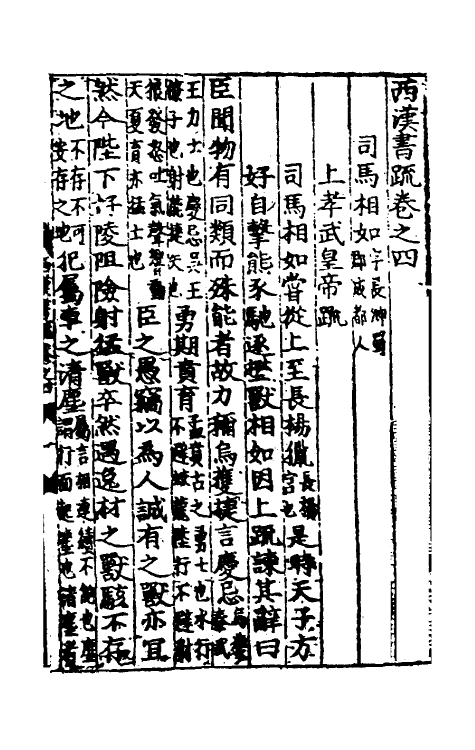 西漢書疏卷之四
司馬相如字長卿蜀郡成都人
上孝武皇帝疏
司馬相如嘗從上至長楊獵長楊宮也是時天子方
好自擊熊豕馳逐壄獸相如因上疏諫其辭曰
臣聞物有同類而殊能者故力稱烏獲捷言慶忌烏獲秦武
王力士也慶忌吳王僚子也射能捷矢也勇期賁育孟賁古之勇士也水行不避蛟龍陸行不避豺
狼發怒吐氣聲響動天夏育亦猛士也臣之愚竊以為人誠有之獸亦宜
然今陛下好陵阻險射猛獸卒然遇逸材之獸駭不存
之地不存不可安存之地也犯屬車之清塵屬言相連續不絕也塵謂行而起塵也